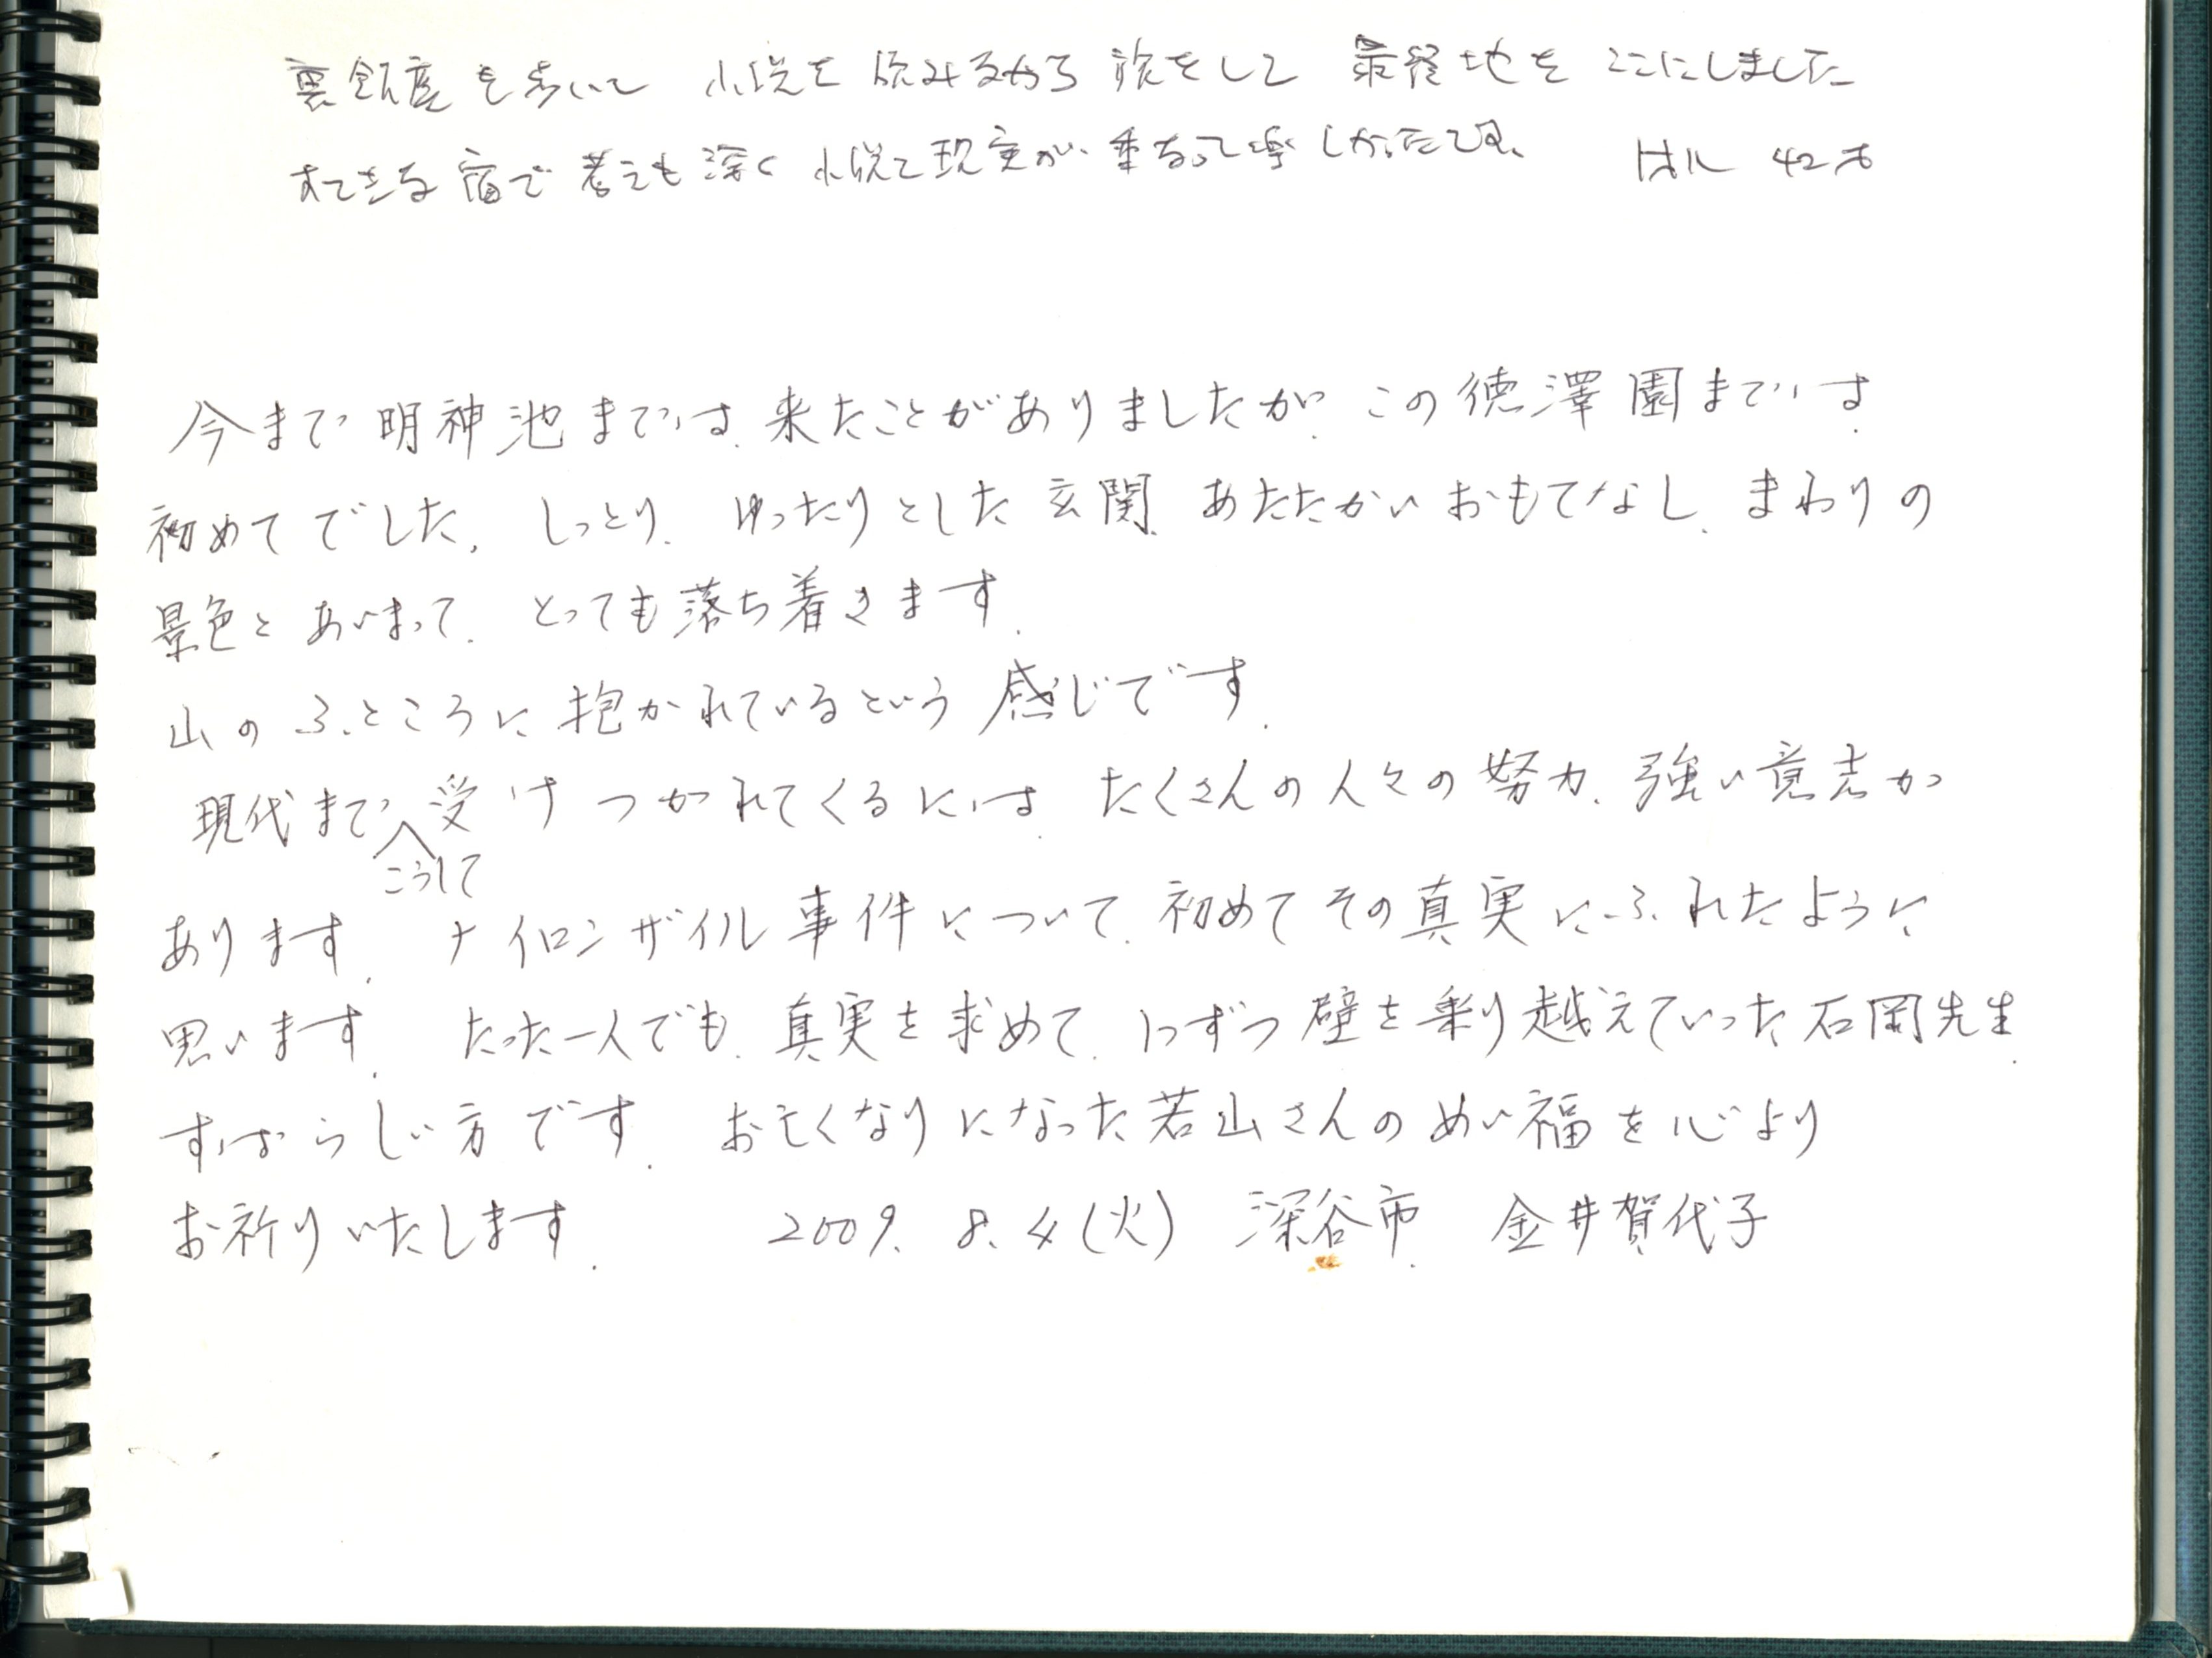 裏銀座を歩いて 小説を読みながら旅をして 最終地をここにしました
すてきな宿で 考えも深く 小説と現実が重なって楽しかったです。 ハル 42才
今まで明神池までは、来たことがありましたが、この徳澤園までは、
初めてでした。しっとり、ゆったりとした玄関、あたたかいおもてなし、まわりの
景色とあいまって、とっても落ち着きます。
山のふところに抱かれているという感じです。
現代まで受けつがれてくるには、たくさんの人々の努力、強い意志が
こうして
あります。 ナイロンザイル事件について、初めてその真実にふれたように
思います。 たった一人でも、真実を求めて、1つずつ壁を乗り越えていった石岡先生、
すばらしい方です。 お亡くなりになった若山さんのめい福を心より
お祈りいたします。 2009. 8. 4 (火) 深谷市. 金井賀代子